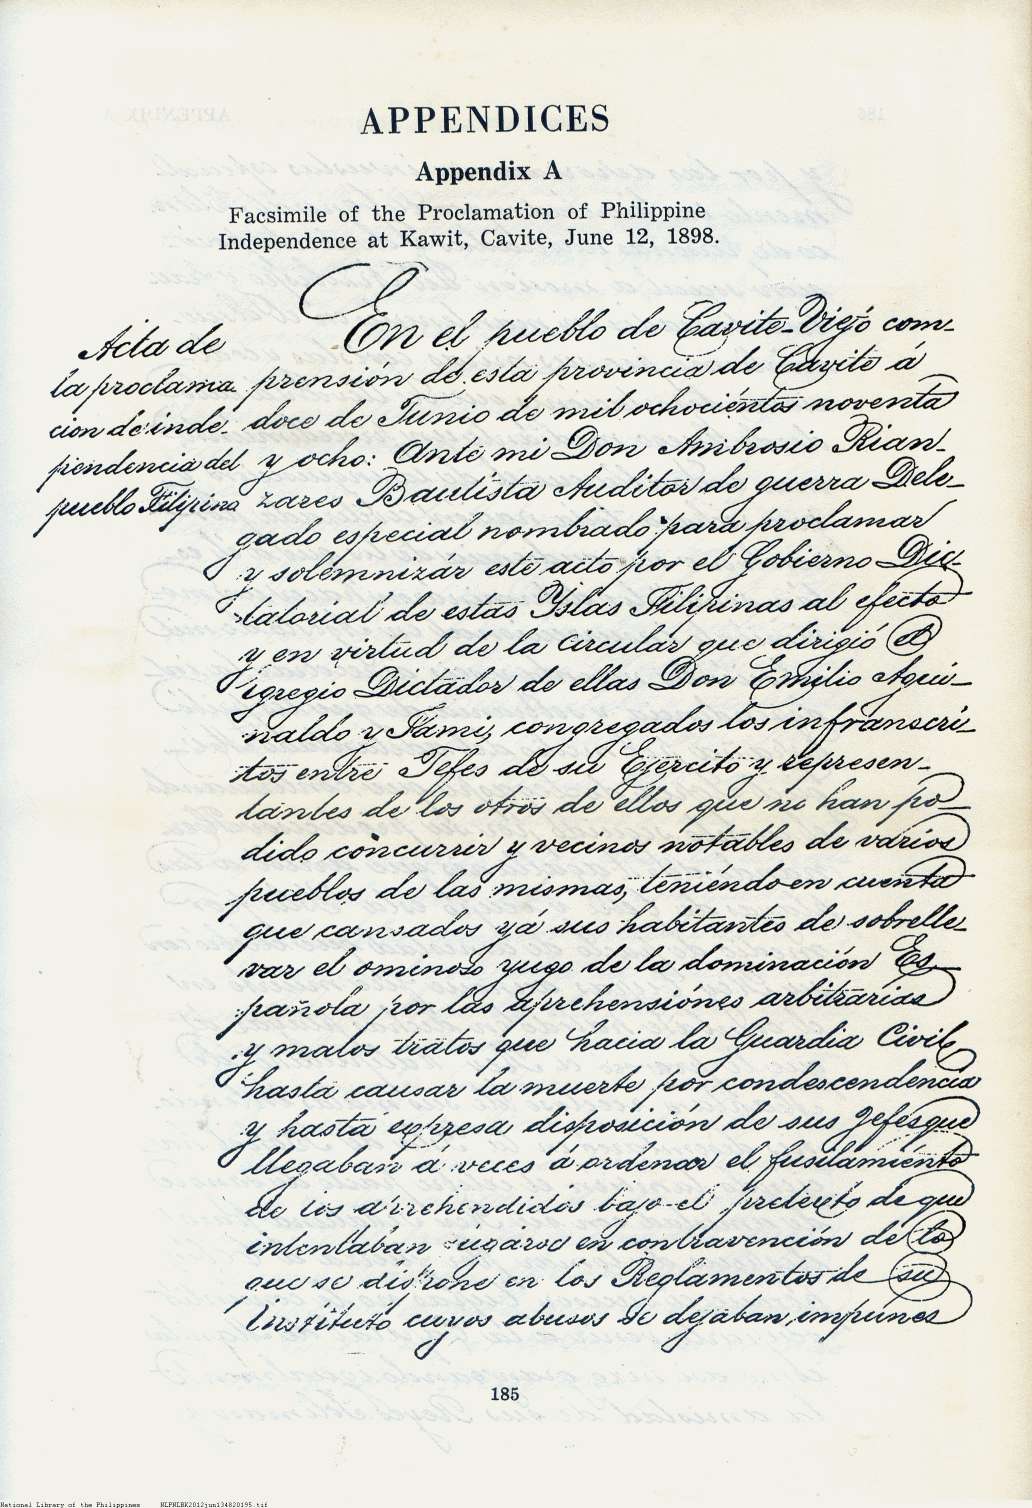 APPENDICES
Appendix A
Facsimile of the Proclamation of Philippine
Independence at Kawit, Cavite, June 12, 1898.
Acta de
la proclama
cion de inde-
pendencia del
pueblo Filipino
En el pueblo de Cavite-Viejo com-
prensión de esta provincia de Cavite á
doce de Junio de mil ochocientos noventa
y ocho: Ante mi Don Ambrosio Rian-
zares Bautista Auditor de guerra Dele-
gado especial nombrado para proclamar
y solemnizár este acto por el Gobierno Dic-
tatorial de estas Yslas Filipinas al efecto
y en virtud de la circular que dirigió el
egregio Dictador de ellas Don Emilio Agui-
naldo y Fami, congregados los infranscri-
tos entre Jefes de su Ejercito y represen-
tantes de los otros de ellos que no han po-
dido concurrir y vecinos notables de varios
pueblos de las mismas, teniéndo en cuenta
que cansados yá sus habitantes de sobrelle-
var el ominoso yugo de la dominación Es-
pañola por las aprehensiónes arbitrarias
y malos tratos que hacia la Guardia Civil
hasta causar la muerte por condescendencia
y hasta expresa disposición de sus Jefes que
llegaban á veces á ordenar el fusilamiento
de los aprehendidos bajo el pretexto de que
intentaban fugarse en contravención de lo
que se dispone en los Reglamentos de su
Instituto cuyos abusos se dejaban impunes
185
National Library of the Philippines NLPNLBK2012jun134820195.tif